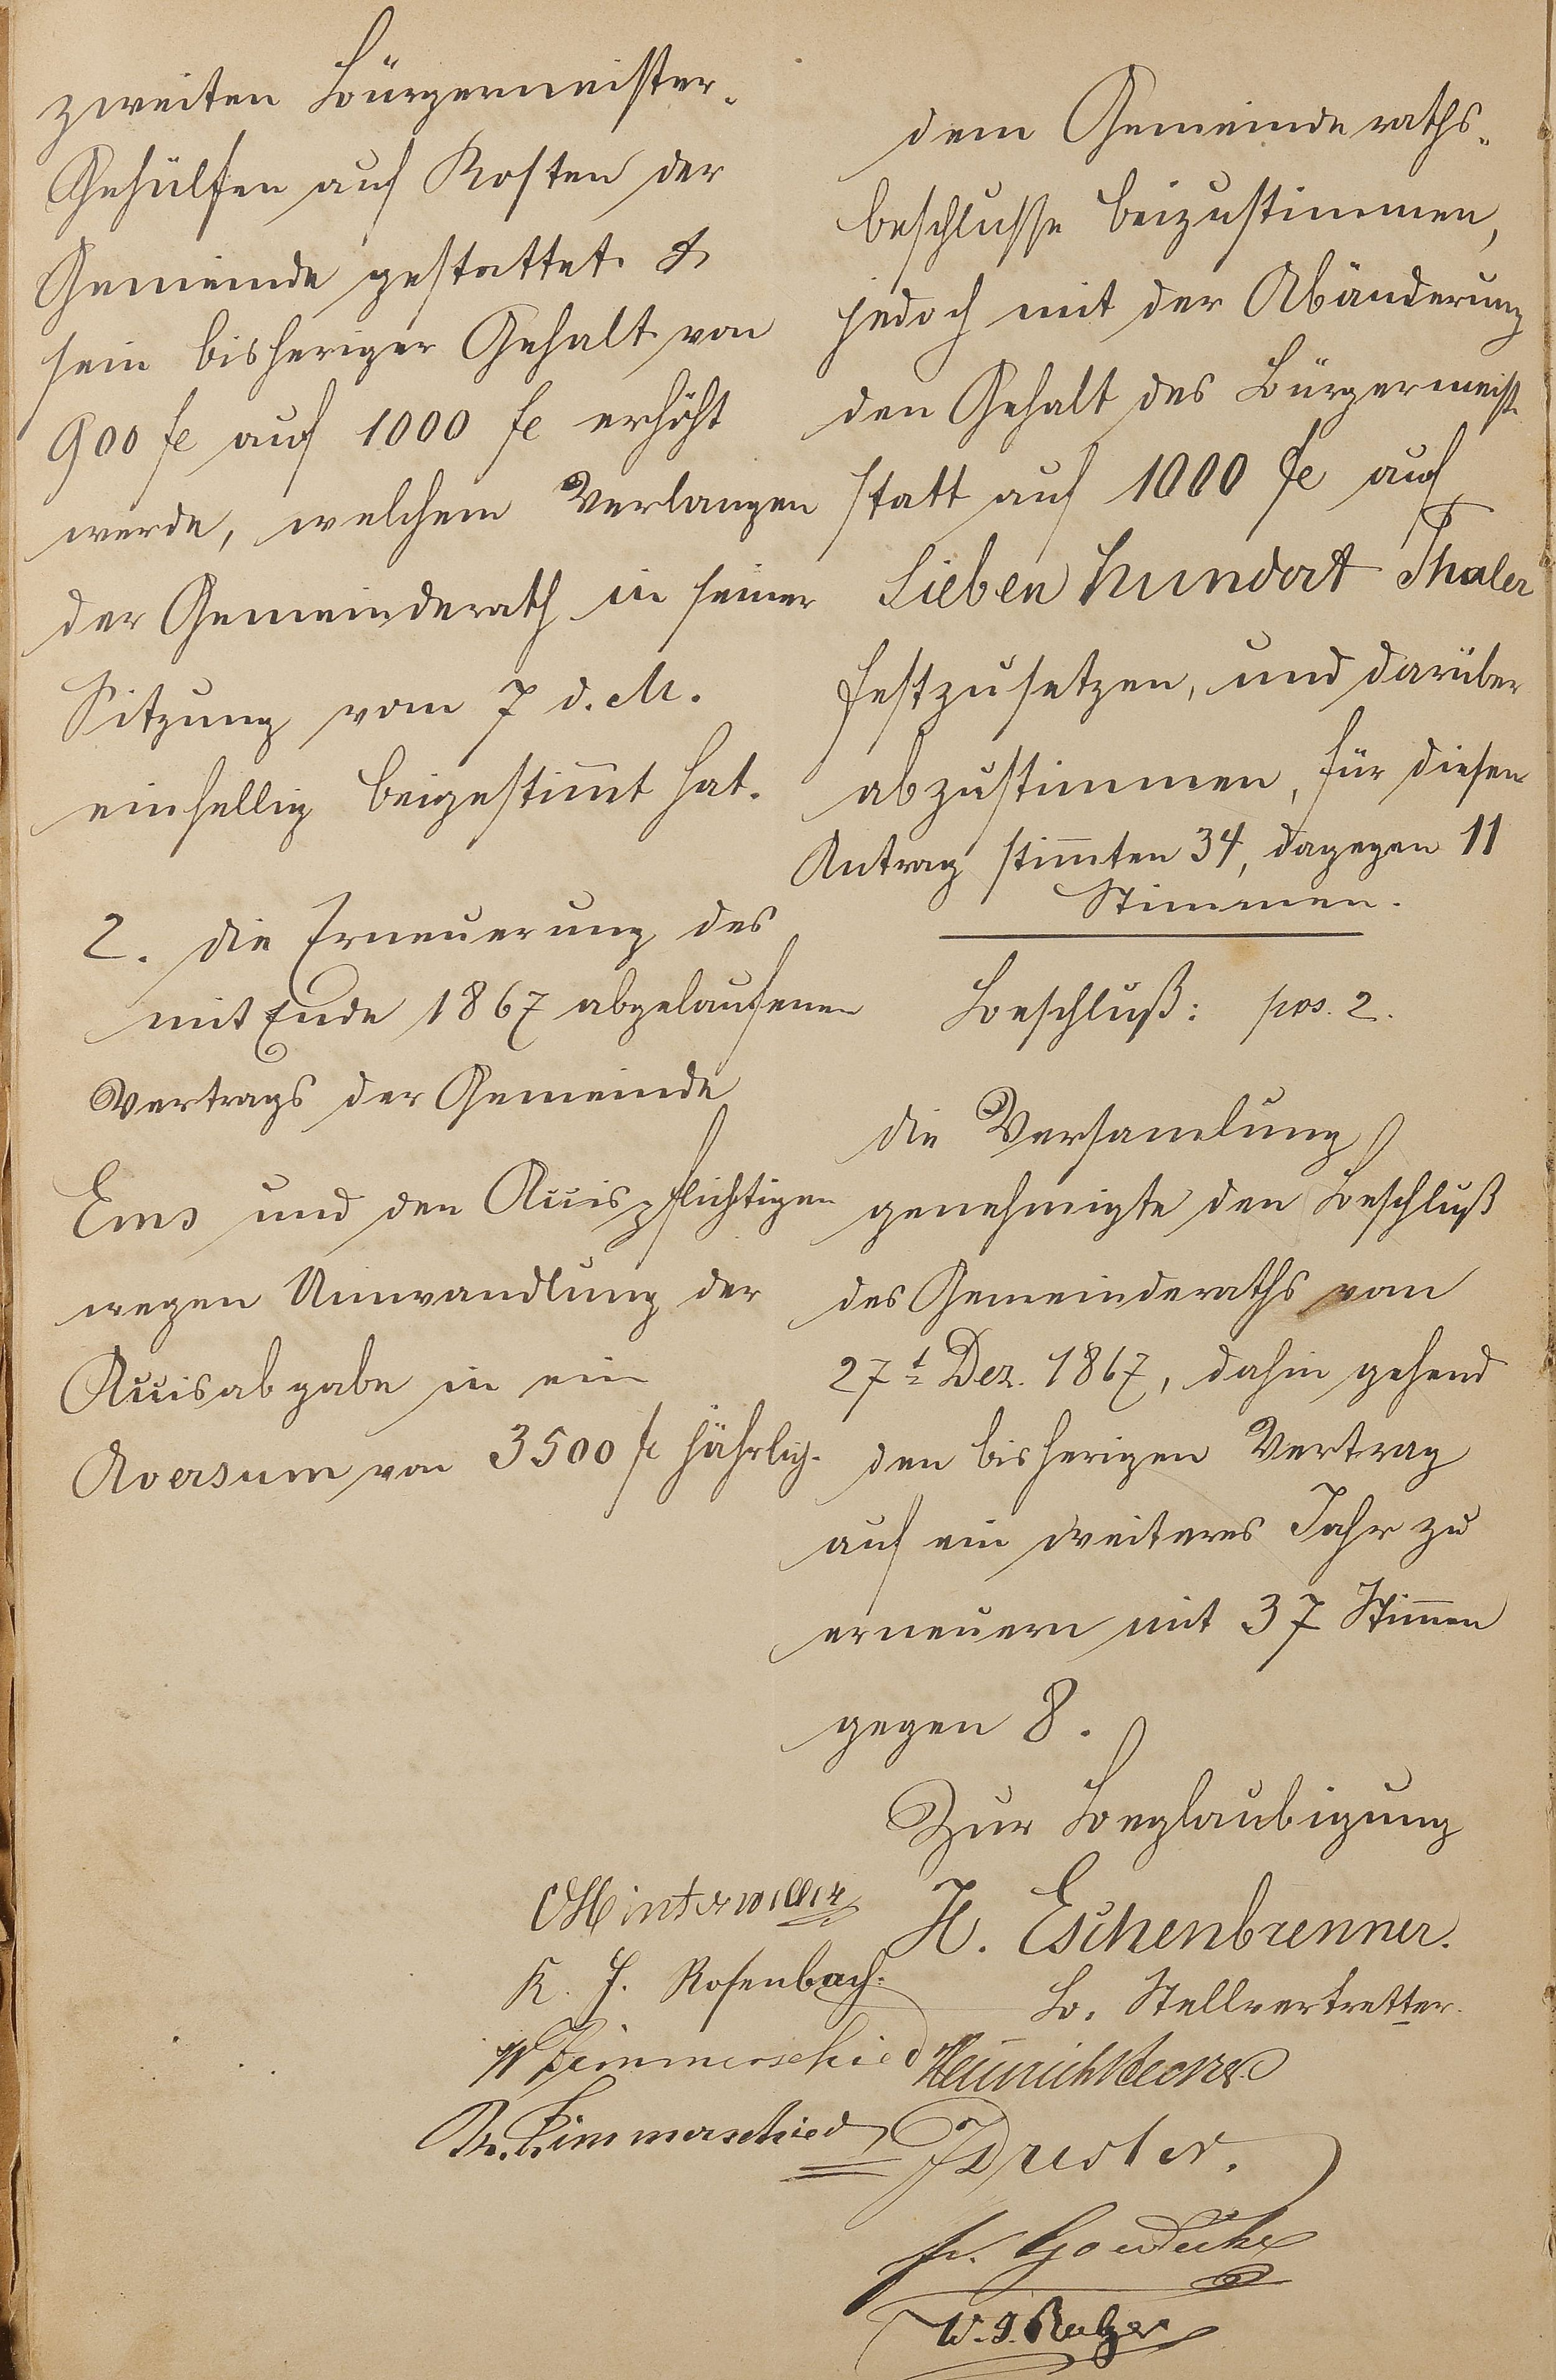 zweiten Bürgermeister-
Gehülfen auf Kosten der
Gemeinde gestattet &
sein bisheriger Gehalt von
900 fl auf 1000 fl erhöht
werde, welchem Verlangen
der Gemeinderath in seiner
Sitzung vom 7 d. M.
einhellig beigestim̅t hat.
2. die Erneuerung des
mit Ende 1867 abgelaufenen
Vertrags der Gemeinde
Ems und den Accispflichtigen
wegen Umwandlung der
Accisabgabe in ein
Aversum von 3500 fl jährlich.
dem Gemeinderaths-
beschlusse beizustimmen,
jedoch mit der Abänderung
den Gehalt des Bürgermeist.
statt auf 1000 fl auf
Sieben hundert Thaler
festzusetzen, und darüber
abzustimmen, für diesen
Antrag stim̅ten 34, dagegen 11
Stimmen.
Beschluß: pos. 2.
die Versamlung
genehmigte den Beschluß
des Gemeinderaths vom
27t Dez. 1867, dahin gehend
den bisherigen Vertrag
auf ein weiteres Jahr zu
erneuern mit 37 Stim̅en
gegen 8.
Zur Beglaubigung
H. Eschenbrenner.
B. Stellvertretter.
K. J. Rosenbach.
W Zimmerschied
Zimmerschied
Heinrich
W. J. Balzer